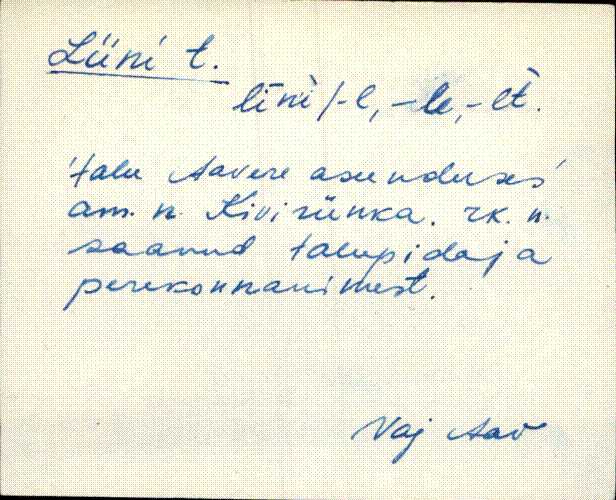 Lüni t.
līnì /-l, -le, -lt̀.
'talu Aavere asunduses'
am. n. Kivirünka. rk. n.
saanud talupidaja
perekonnanimest.
Vaj Aav